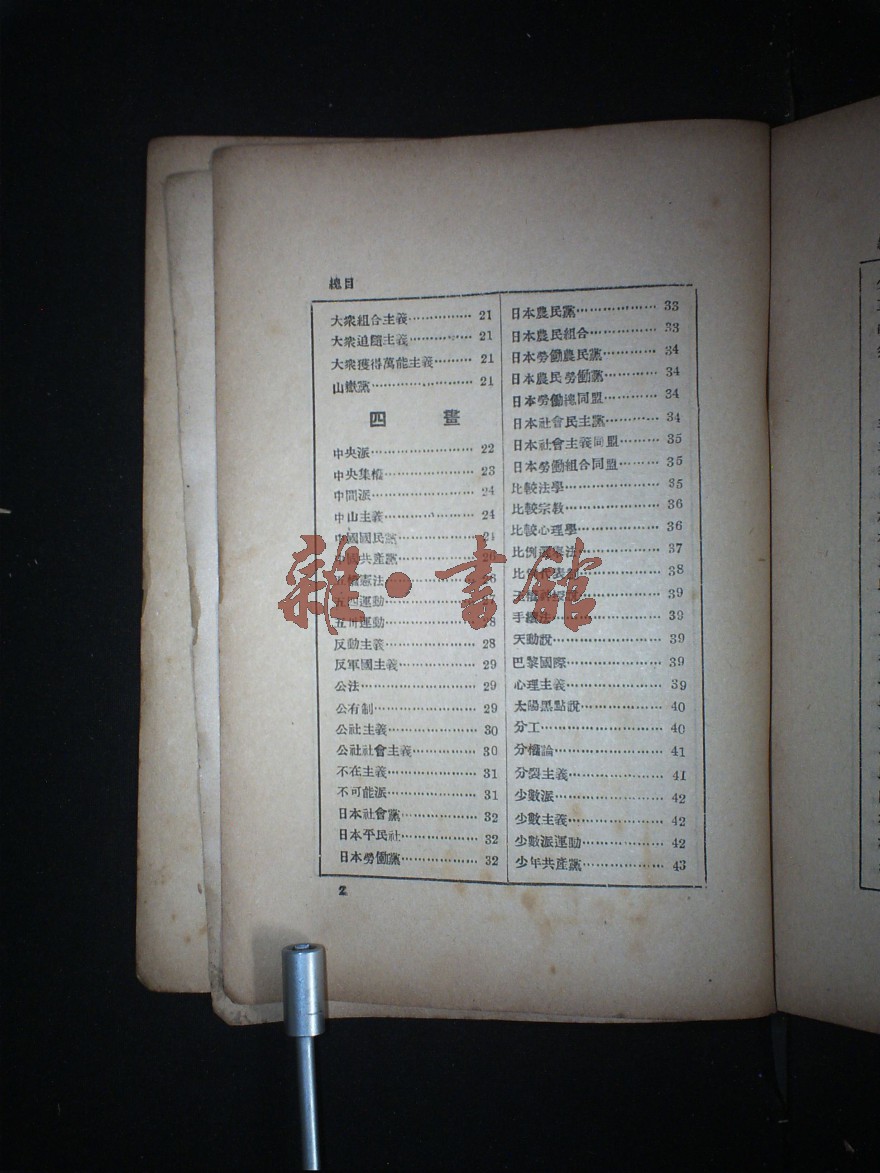 總目
大衆組合主義 21
大衆追隨主義 21
大衆獲得萬能主義 21
山嶽黨 21
四 畫
中央派 22
中央集權 23
中間派 24
中山主義 24
中國國民黨 24
中國共產黨
五權憲法
五四運動
五卅運動
反動主義 28
反軍國主義 29
公法 29
公有制 29
公社主義 30
公社社會主義 30
不在主義 31
不可能派 31
日本社會黨 32
日本平民社 32
日本勞働黨 32
日本農民黨 33
日本農民組合 33
日本勞働農民黨 34
日本農民勞働黨 34
日本勞働總同盟 34
日本社會民主黨 34
日本社會主義同盟 35
日本勞働組合同盟 35
比較法學 35
比較宗教 36
比較心理學 36
比例 法 37
比 38
39
手續法 39
天動說 39
巴黎國際 39
心理主義 39
太陽黑點說 40
分工 40
分權論 41
分裂主義 41
少數派 42
少數主義 42
少數派運動 42
少年共產黨 43
2
雜·書館